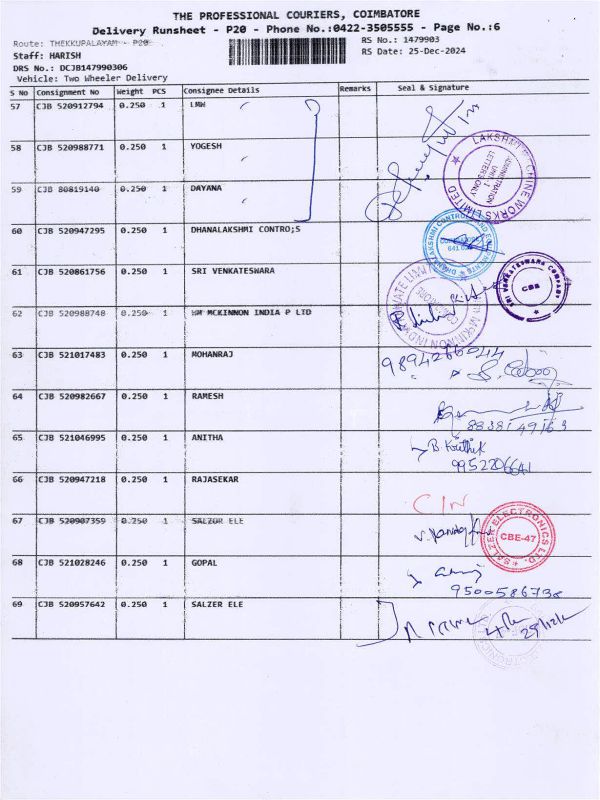 THE PROFESSIONAL COURIERS, COIMBATORE
Delivery Runsheet - P20 - Phone No.:0422-3505555 - Page No.:6
Route: THEKKUPALAYAM - P20
RS No.: 1479903
Staff: HARISH
RS Date: 25-Dec-2024
DRS No.: DCJB147990306
Vehicle: Two Wheeler Delivery
S No Consignment No Weight PCS Consignee Details Remarks Seal & Signature
57 CJB 520912794 0.250 1 LMW
58 CJB 520988771 0.250 1 YOGESH
59 CJB 80819140 0.250 1 DAYANA
LAKSHMI MACHINE WORKS LIMITED
ADMINISTRATION
UNIT-1
LETTERS ONLY
60 CJB 520947295 0.250 1 DHANALAKSHMI CONTRO;S
61 CJB 520861756 0.250 1 SRI VENKATESWARA
SRI VENKATESWARA COMPANY
CBE
62 CJB 520988748 0.250 1 MW MCKINNON INDIA P LTD
63 CJB 521017483 0.250 1 MOHANRAJ
9894266044
64 CJB 520982667 0.250 1 RAMESH
8838149163
65 CJB 521046995 0.250 1 ANITHA
B. Krithik
66 CJB 520947218 0.250 1 RAJASEKAR
67 CJB 520907359 0.250 1 SALZOR ELE
SALZER ELECTRONICS LTD.
CBE-47
68 CJB 521028246 0.250 1 GOPAL
9500586738
69 CJB 520957642 0.250 1 SALZER ELE